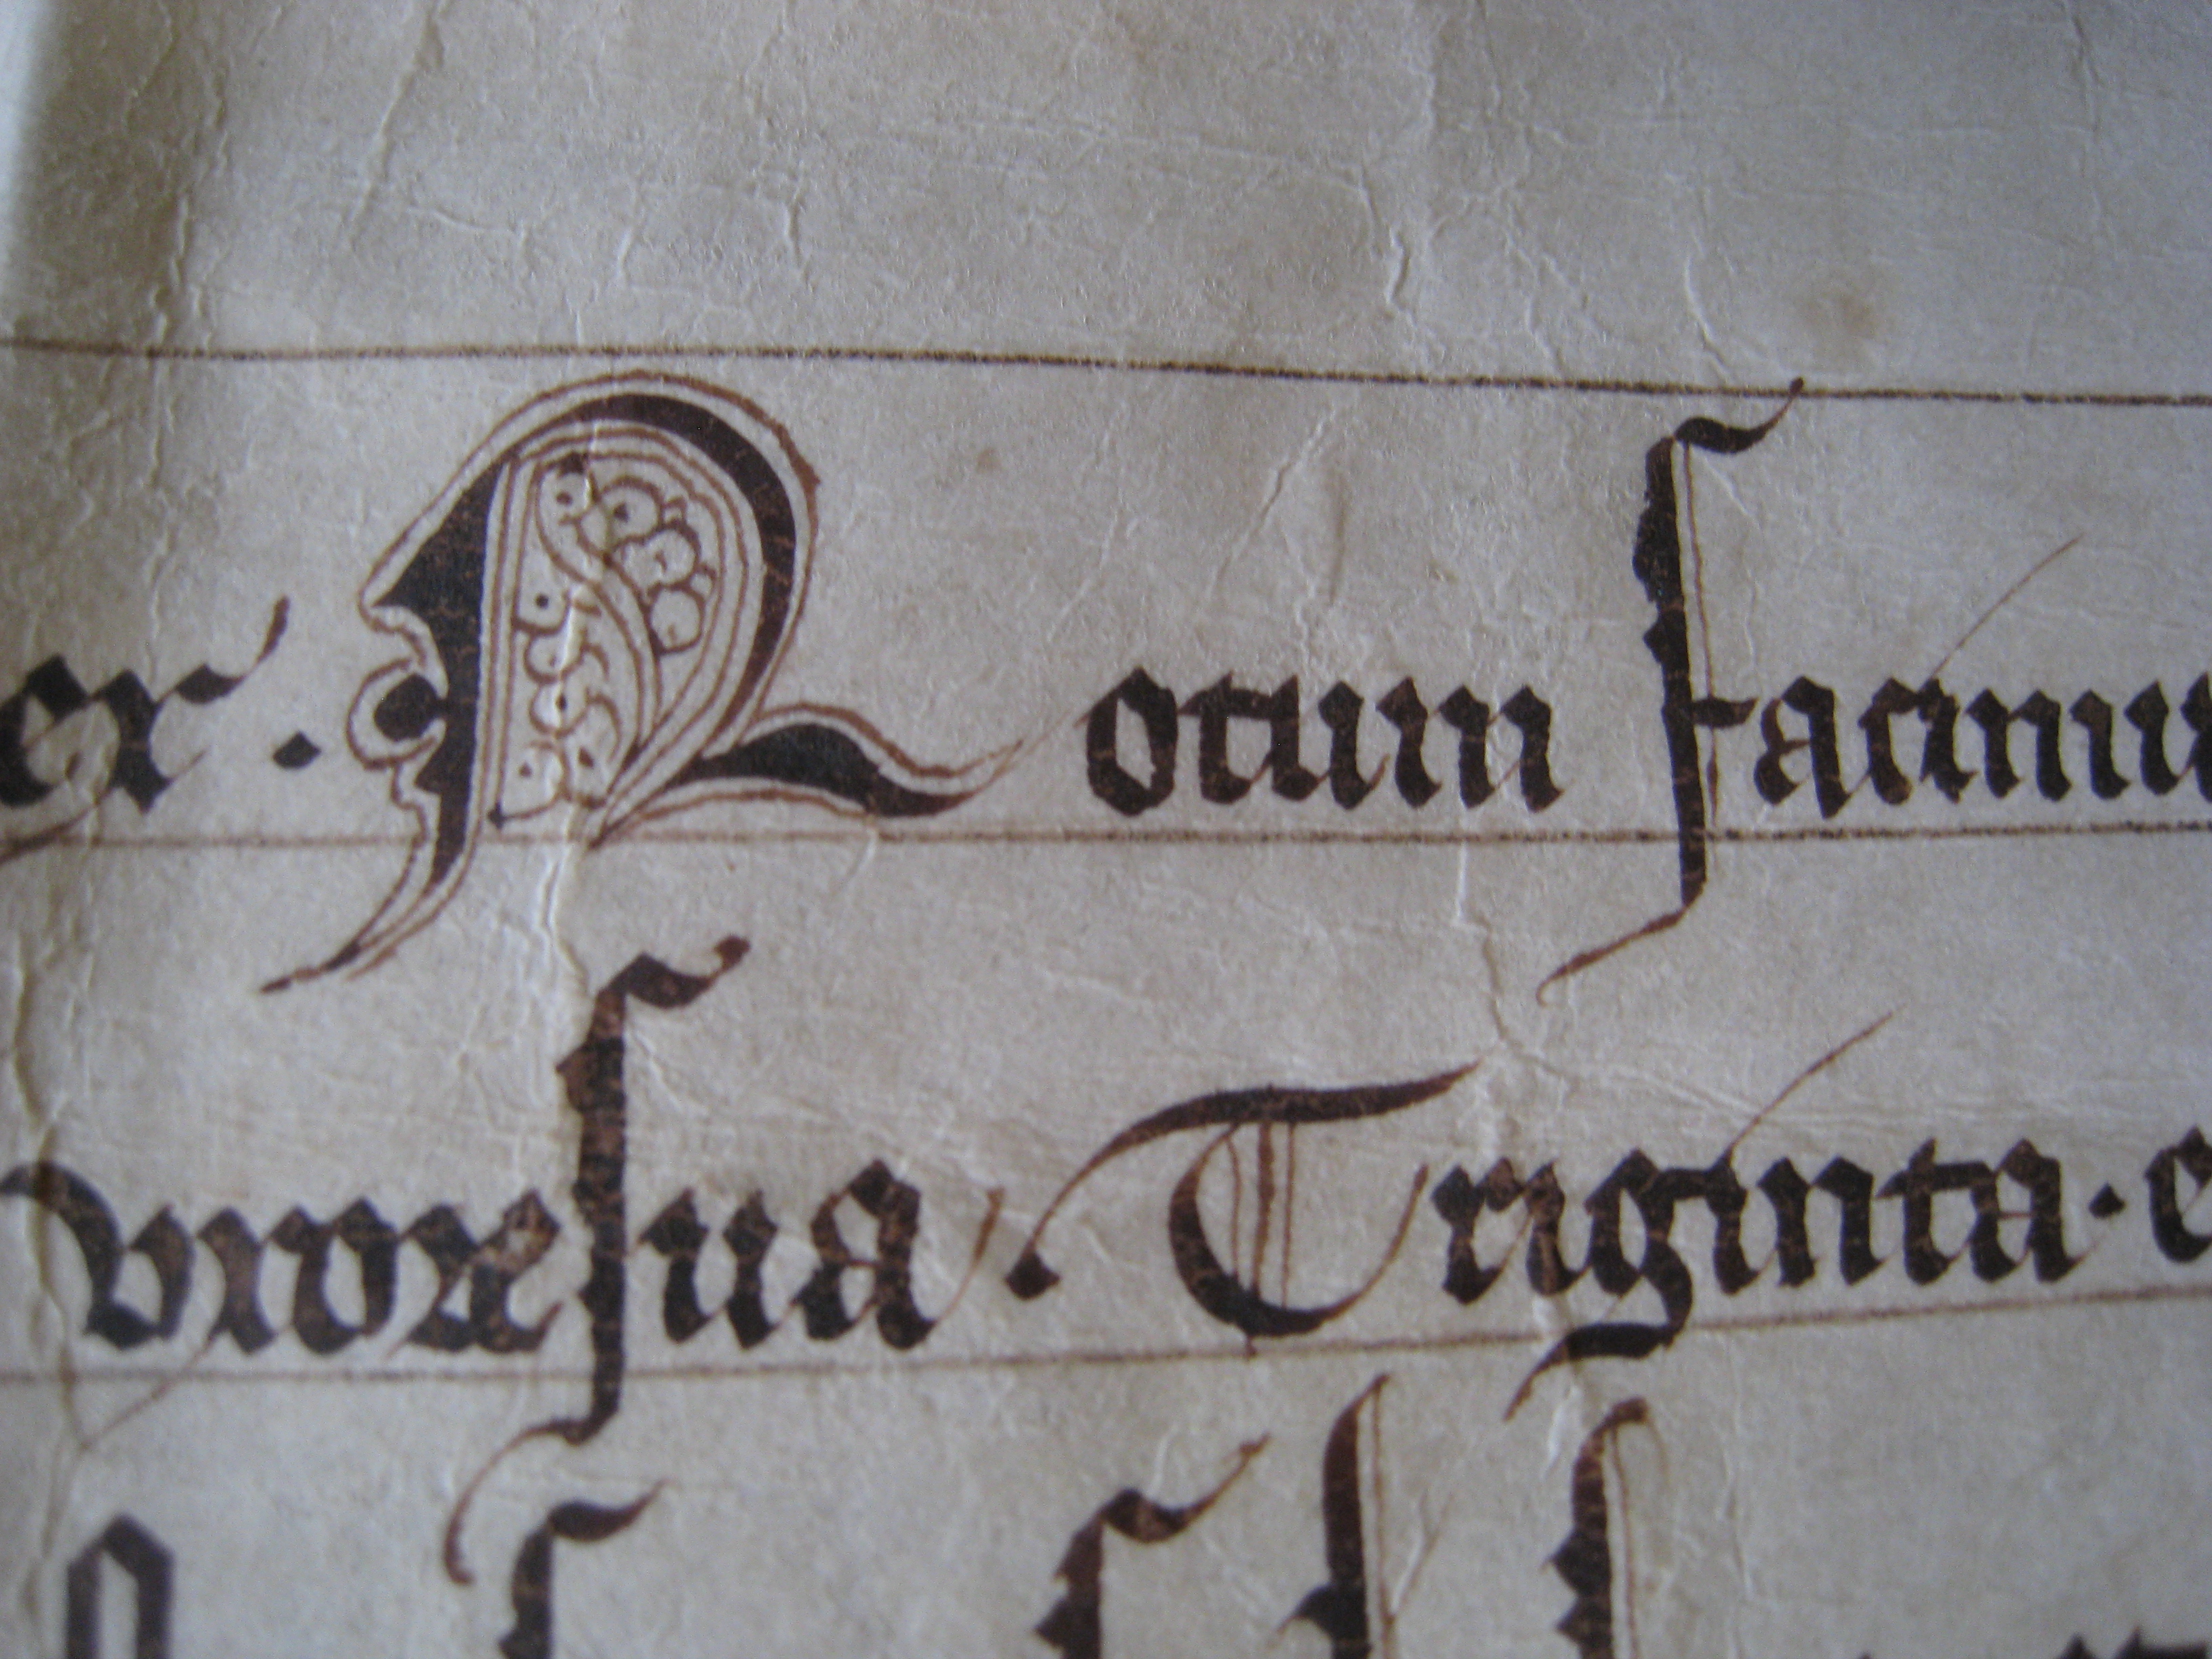 er. Notum facimu
vxore sua. Triginta. e